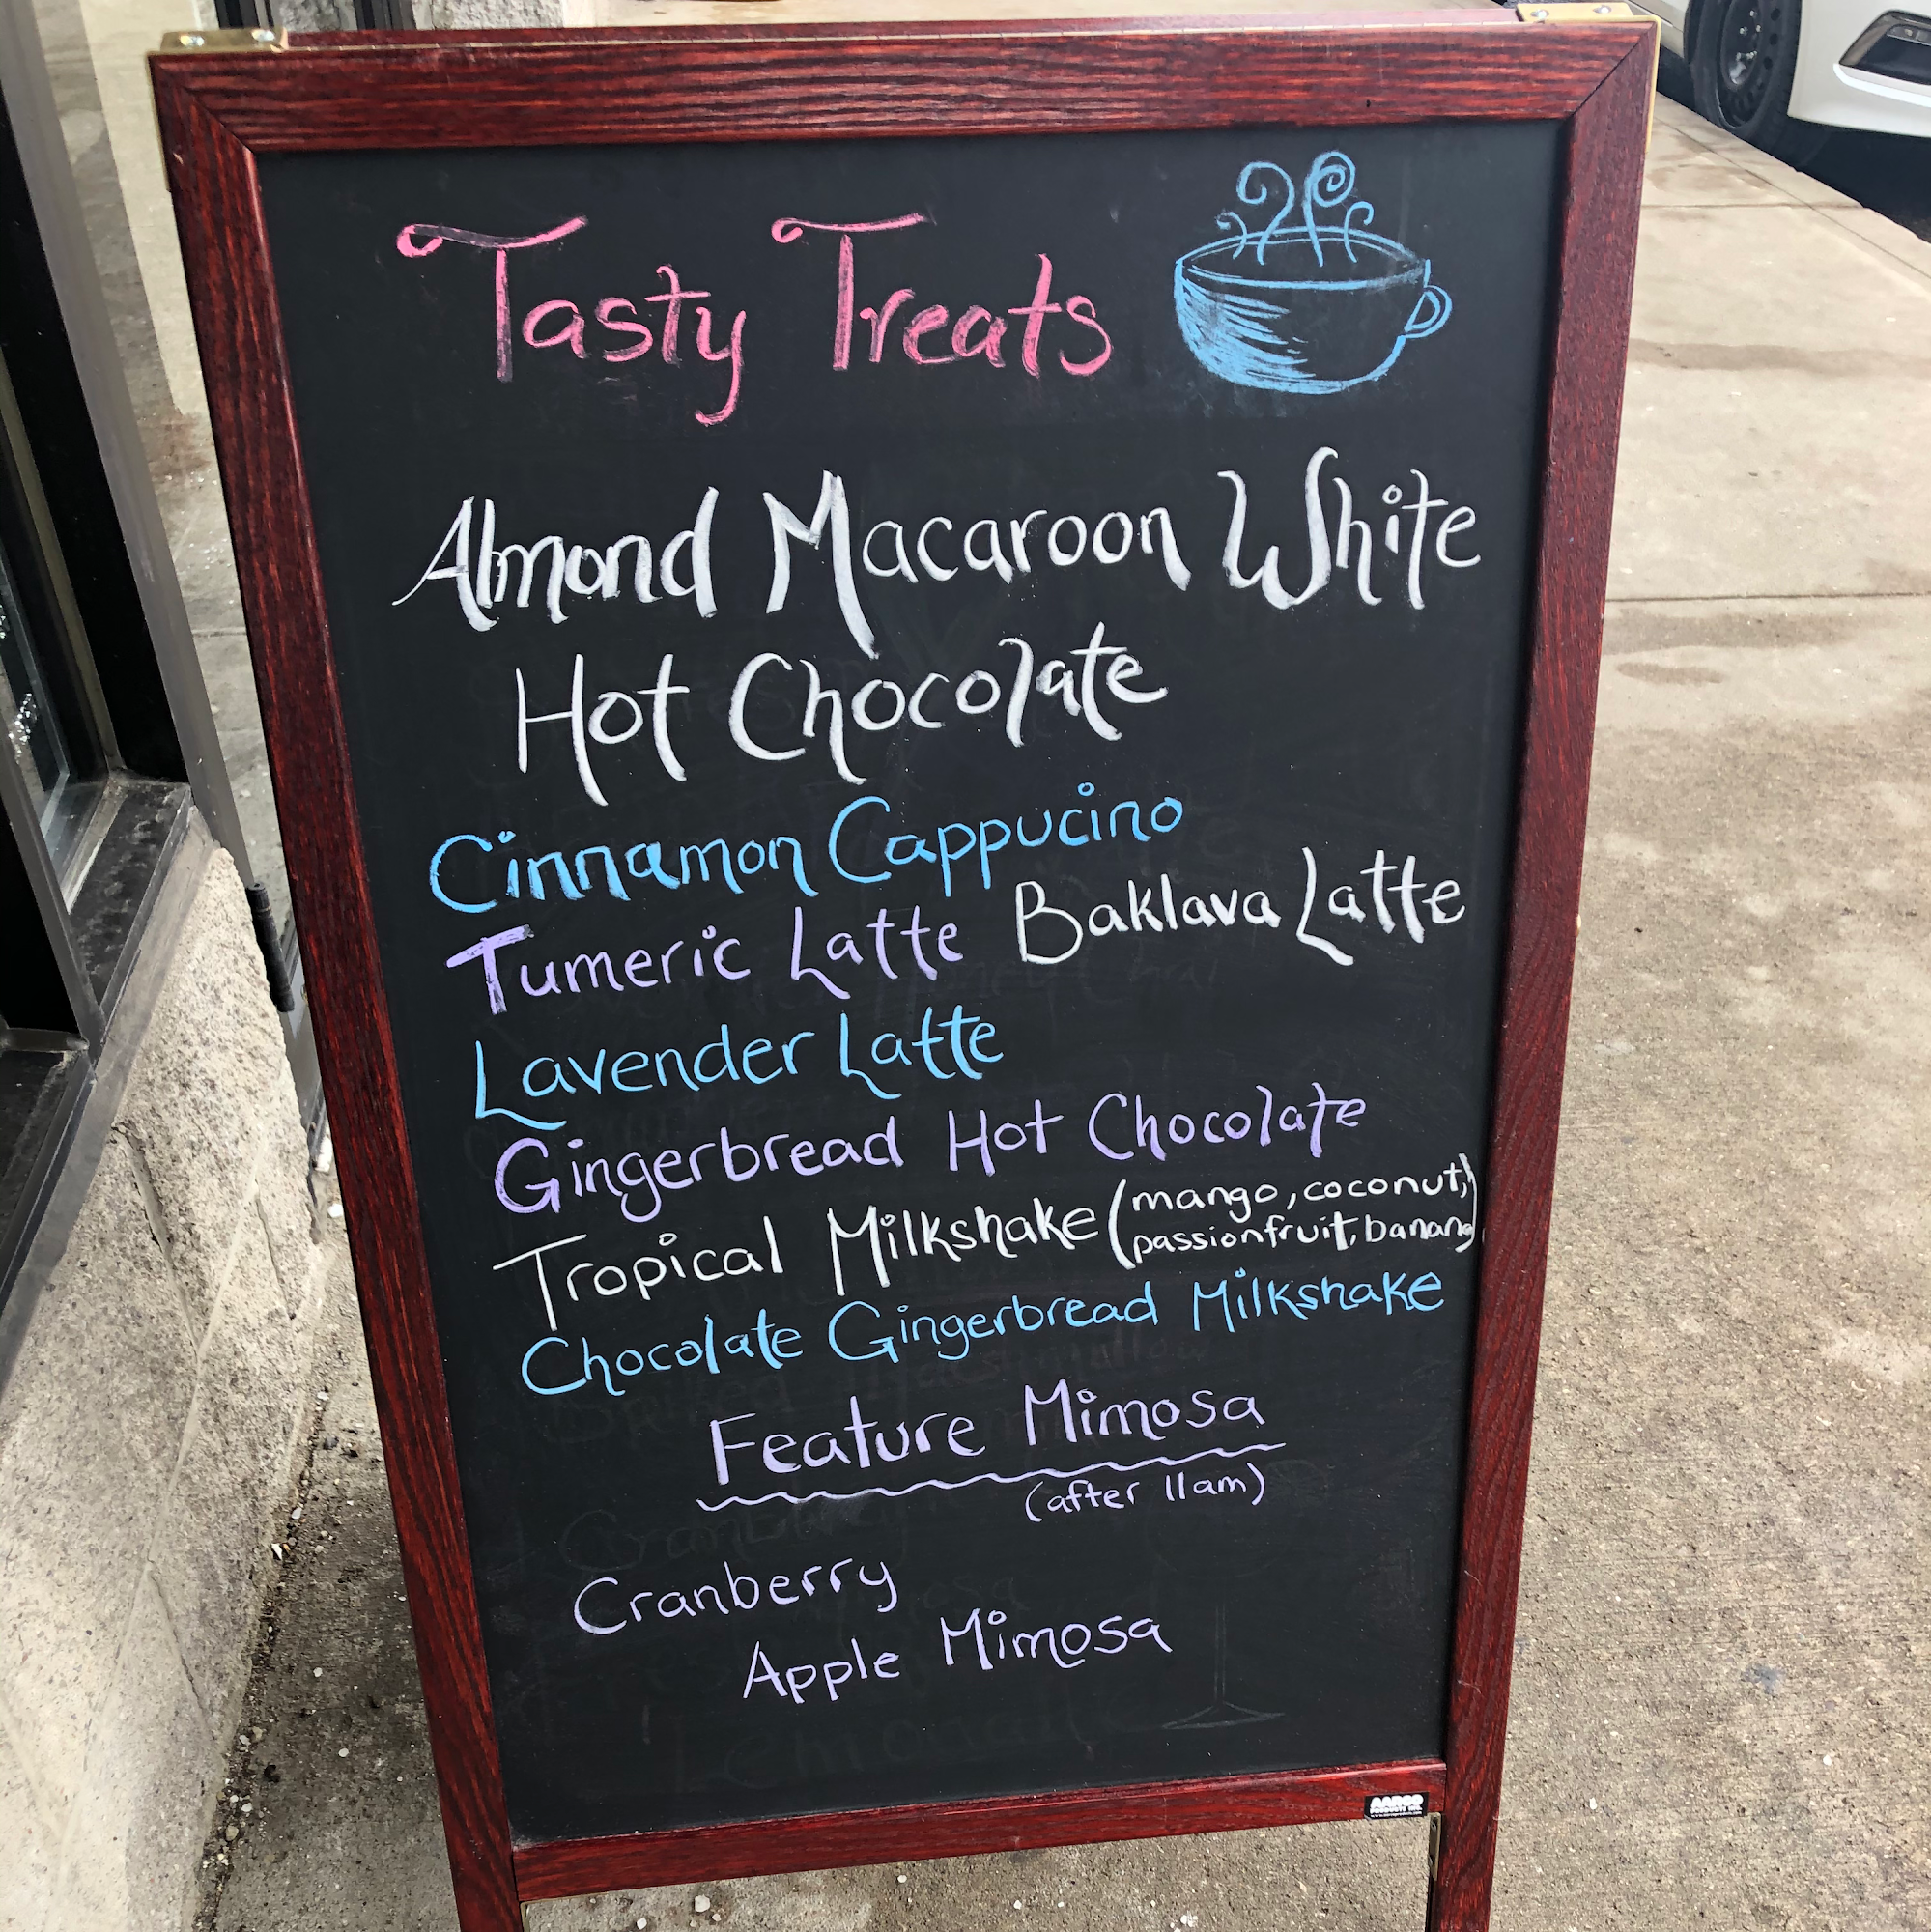 Tasty Treats
Almond Macaroon White
Hot Chocolate
Cinnamon Cappucino
Tumeric Latte Baklava Latte
Lavender Latte
Gingerbread Hot Chocolate
Tropical Milkshake (mango, coconut,
passionfruit, banana)
Chocolate Gingerbread Milkshake
Feature Mimosa
(after 11am)
Cranberry
Apple Mimosa